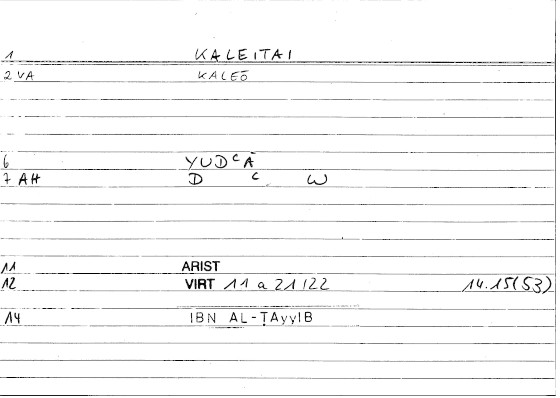 1 KALEITAI
2 VA KALEŌ
6 YUDᶜĀ
7 AH D ᶜ W
11 ARIST
12 VIRT 11 a 21/22 14.15(53)
14 IBN AL-ṬAyyIB